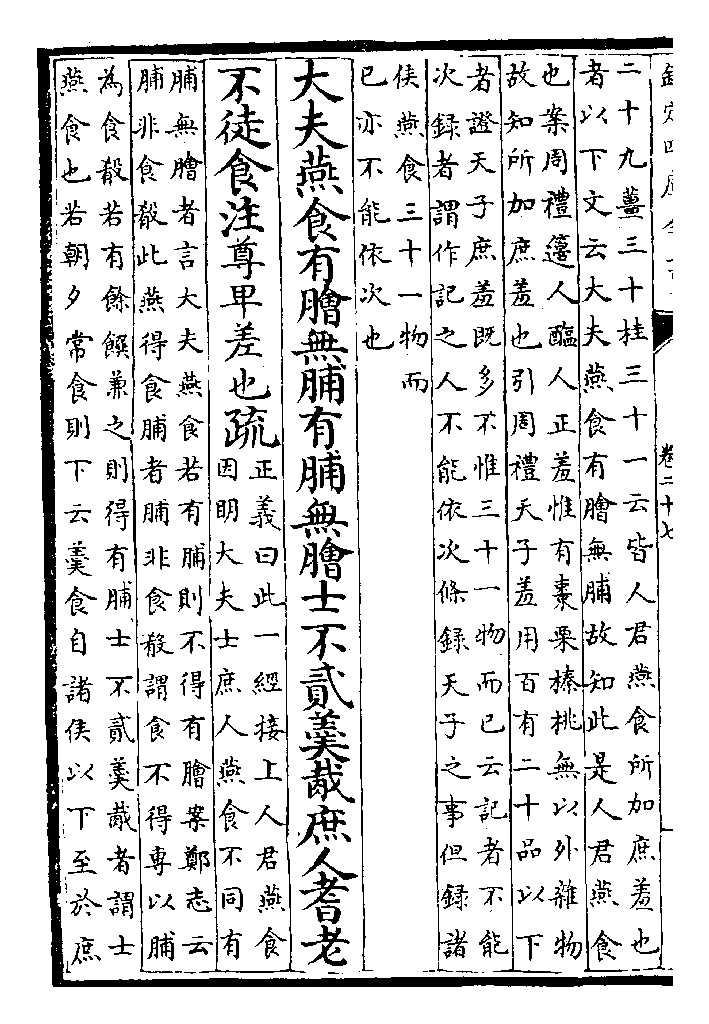 卷二十七
二十九薑三十桂三十一云皆人君燕食所加庶羞也
者以下文云大夫燕食有膾無脯故知此是人君燕食
也案周禮籩人醢人正羞惟有棗栗榛桃無以外雜物
故知所加庶羞也引周禮天子羞用百有二十品以下
者證天子庶羞既多不惟三十一物而已云記者不能
次錄者謂作記之人不能依次條錄天子之事但錄諸
侯燕食三十一物而
已亦不能依次也
大夫燕食有膾無脯有脯無膾士不貳羹胾庶人耆老
不徒食注尊卑差也疏
正義曰此一經接上人君燕食
因明大夫士庶人燕食不同有
脯無膾者言大夫燕食若有脯則不得有膾案鄭志云
脯非食殽此燕得食脯者脯非食殽謂食不得專以脯
為食殽若有餘饌兼之則得有脯士不貳羹胾者謂士
燕食也若朝夕常食則下云羹食自諸侯以下至於庶